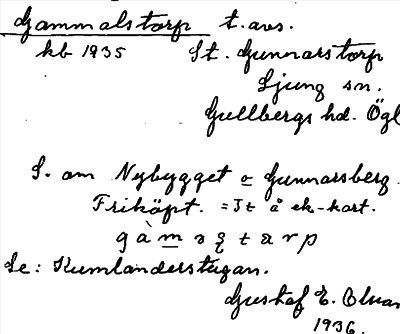 Gammalstorp t. avs.
kb 1935 St. Gunnarstorp
Ljung sn.
Gullbergs hd. Ögl
S. om Nybygget o Gunnarsberg.
Friköpt. = Jt å ek-kart.
Se: Kumlanderstugan.
Gustaf E. Olsan
1936.